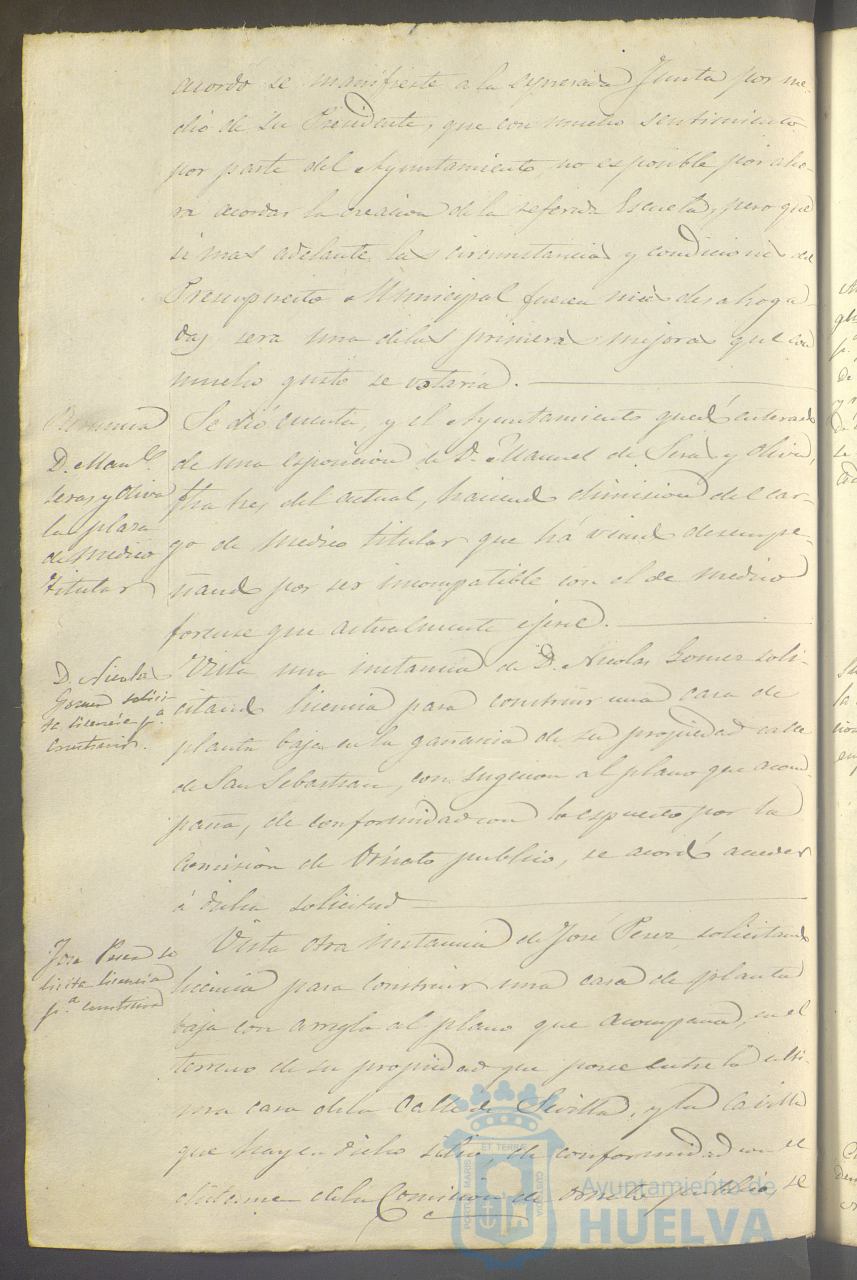 acordó se manifieste a la espresada Junta por me-
dio de su Presidente, que con mucho sentimiento
por parte del Ayuntamiento, no es posible por aho-
ra acordar la creacion de la referida Escuela, pero que
si mas adelante las circunstancias y condiciones del
Presupuesto Municipal fueren mas desahoga-
das sera una de las primeras mejoras que con
mucho gusto se votaria.
Renuncia
D. Man.l
Seras y Oliva
la plaza
de Medico
titular
Se dió cuenta, y el Ayuntamiento quedó enterado
de una esposicion de D. Manuel de Seras y Oliva,
fha tres del actual, haciendo dimision del car-
go de Medico titular que há venido desempe-
ñando por ser incompatible con el de medico
forense que actualmente ejerce.
D. Nicolas
Gomez solici-
ta licencia p.a
construir.
Vista una instancia de D. Nicolas Gomez soli-
citando licencia para construir una casa de
planta baja en la de su propiedad calle
de San Sebastian, con sugecion al plano que acom-
paña, de conformidad con lo espuesto por la
Comision de Ornato publico, se acordó acceder
á dicha solicitud
Jose Perez so
licita licencia
p.a construir
Vista otra instancia de José Perez, solicitando
licencia para construir una casa de planta
baja con arreglo al plano que acompaña, en el
terreno de su propiedad que posee entre la ulti-
ma casa de la Calle de Sevilla, y la
que hay en dicho sitio, de conformidad con el
dictamen de la Comision de ornato publico, se
PORTUS MARIS ET TERRE CUSTODIA
Ayuntamiento de
HUELVA